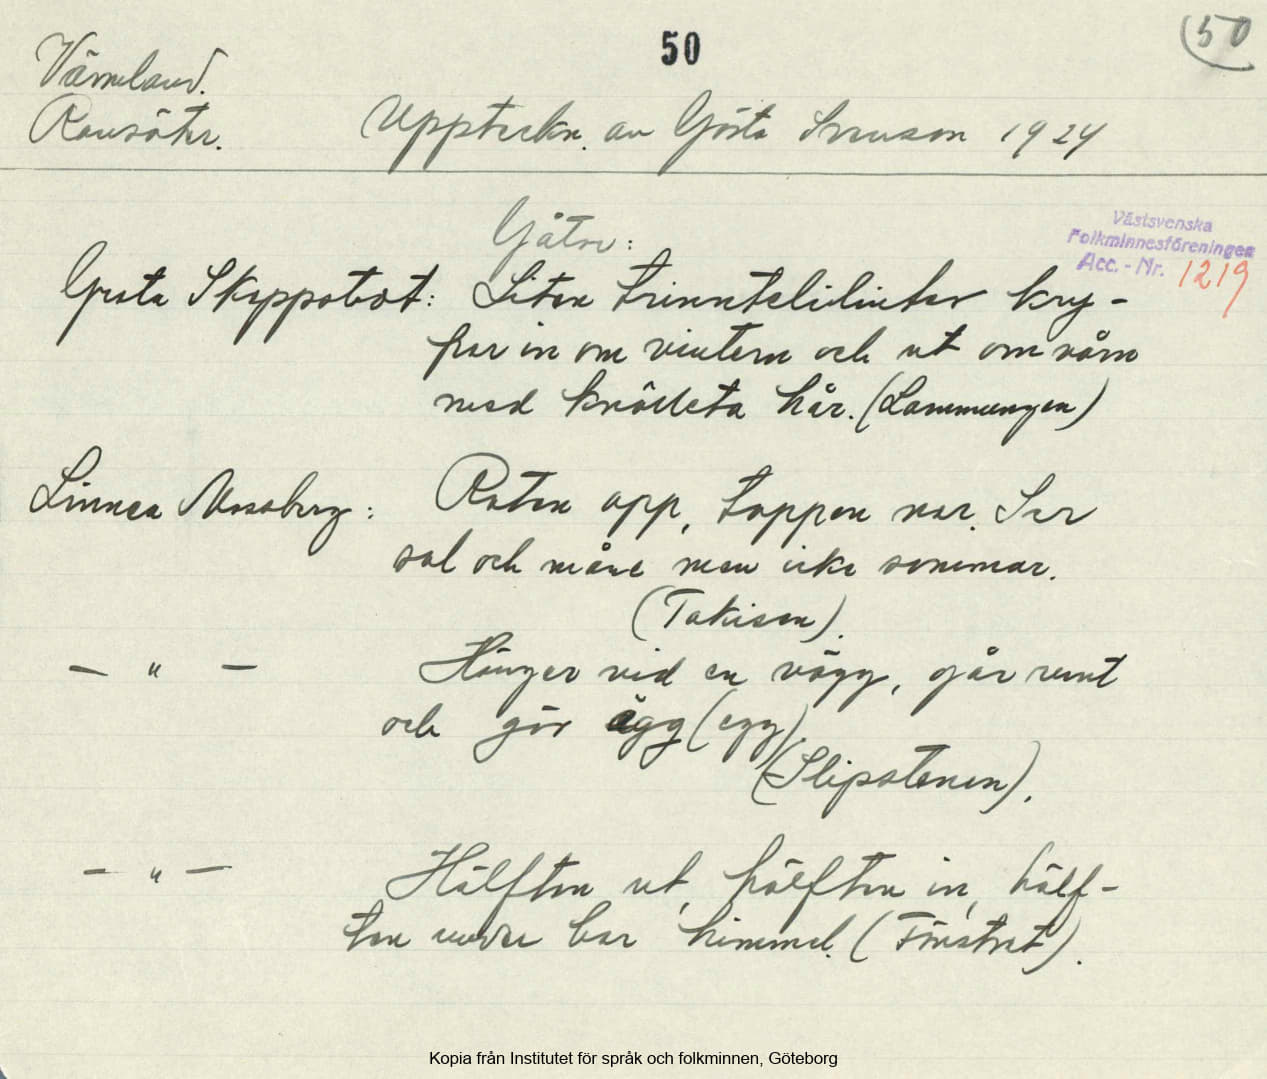 50
50
Värmland.
Ransäter.
Uppteckn. av Gösta Svenson 1924
Västsvenska
Folkminnesföreningen
Acc.-Nr. 1219
Gåtor:
Greta Skeppstedt: Liten trinntelilinter kry-
per in om vintern och ut om vårn
med knölleta hår. (Lammungen)
Linnea Mossberg: Roten opp, toppen ner. Ser
sol och måne men icke sommar.
(Takisen).
— " — Hänger vid en vägg, går runt
och gör ägg (egg)
(Slipstenen).
— " — Hälften ut, hälften in, hälf-
ten under bar himmel. (Fönstret).
Kopia från Institutet för språk och folkminnen, Göteborg